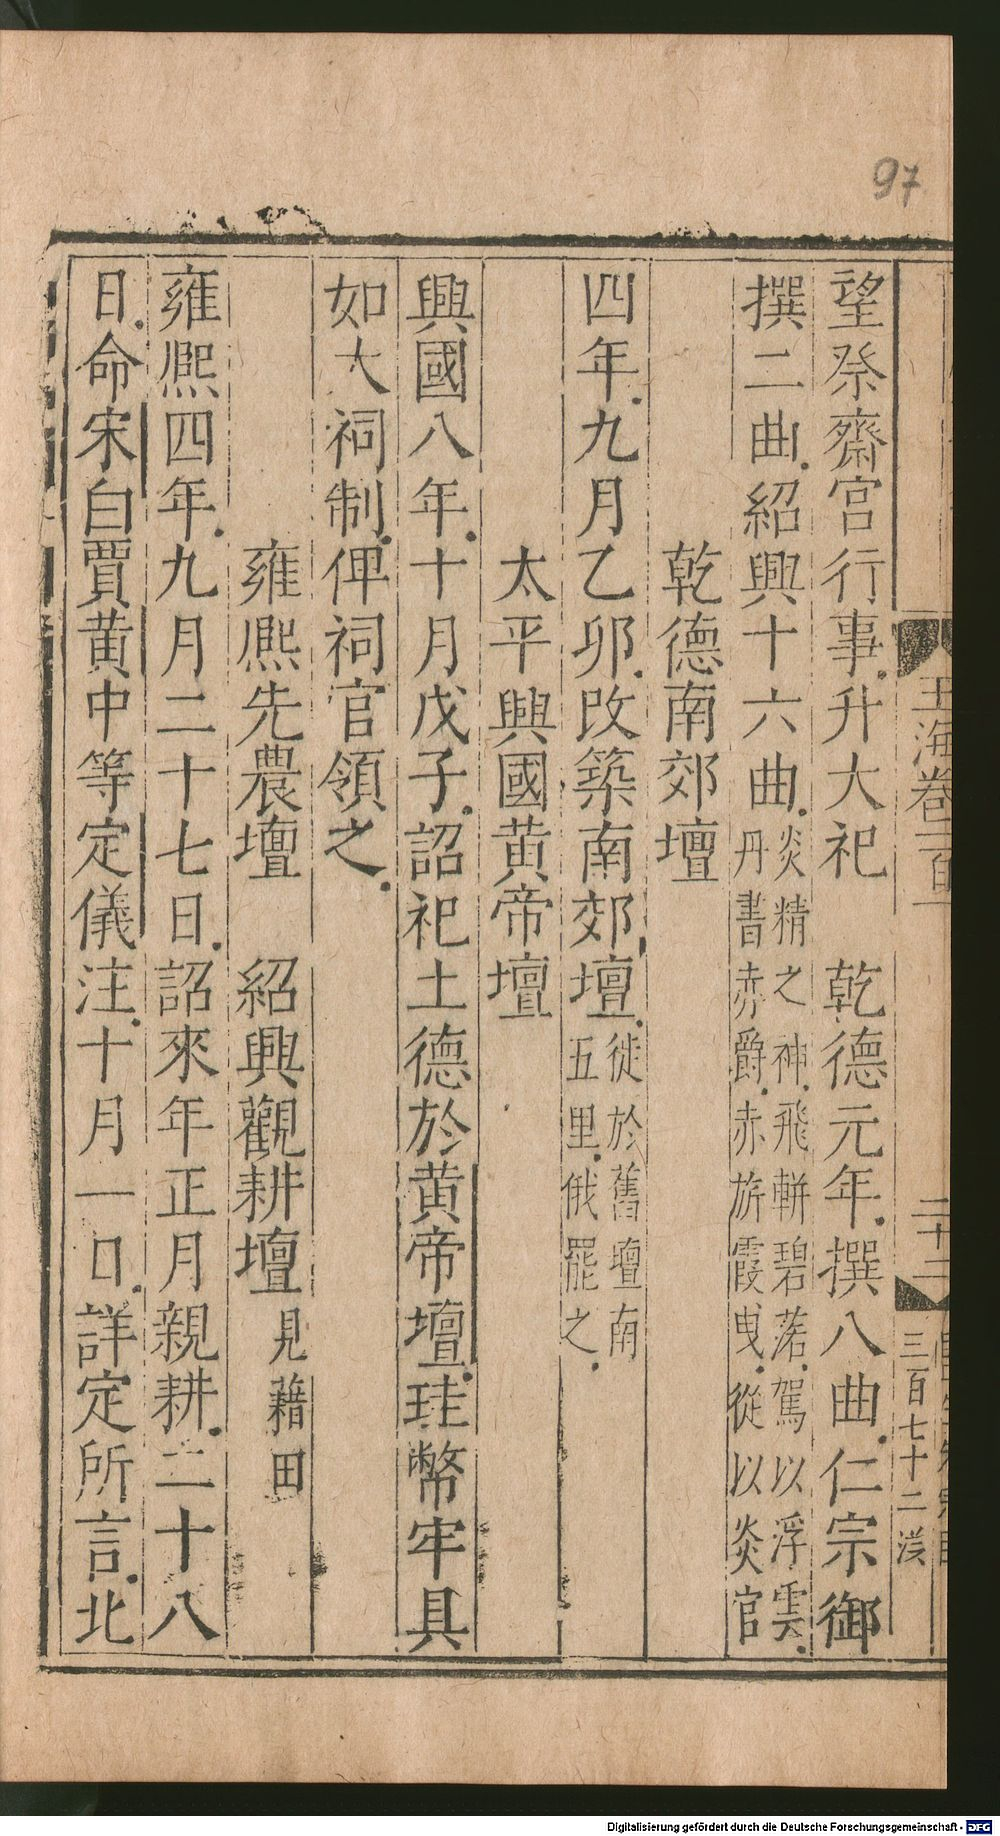 97
玉海卷一百一
二十二
三百七十二
望祭齋宮行事升大祀　乾德元年撰八曲仁宗御
撰二曲紹興十六曲炎精之神飛軿碧落駕以浮雲
丹書赤爵赤旂霞曳從以炎官
乾德南郊壇
四年九月乙卯改築南郊壇徙於舊壇南
五里俄罷之
太平興國黃帝壇
興國八年十月戊子詔祀土德於黃帝壇珪幣牢具
如大祠制俾祠官領之
雍熙先農壇　紹興觀耕壇見藉田
雍熙四年九月二十七日詔來年正月親耕二十八
日命宋白賈黃中等定儀注十月一日詳定所言北
Digitalisierung gefördert durch die Deutsche Forschungsgemeinschaft - DFG